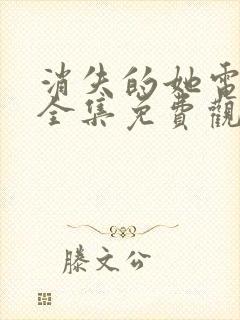 消失的她電
全集免費觀
滕文公